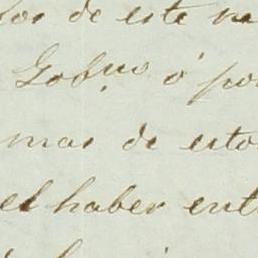 de este
Gob.no ó
mas de esto
el haber ent